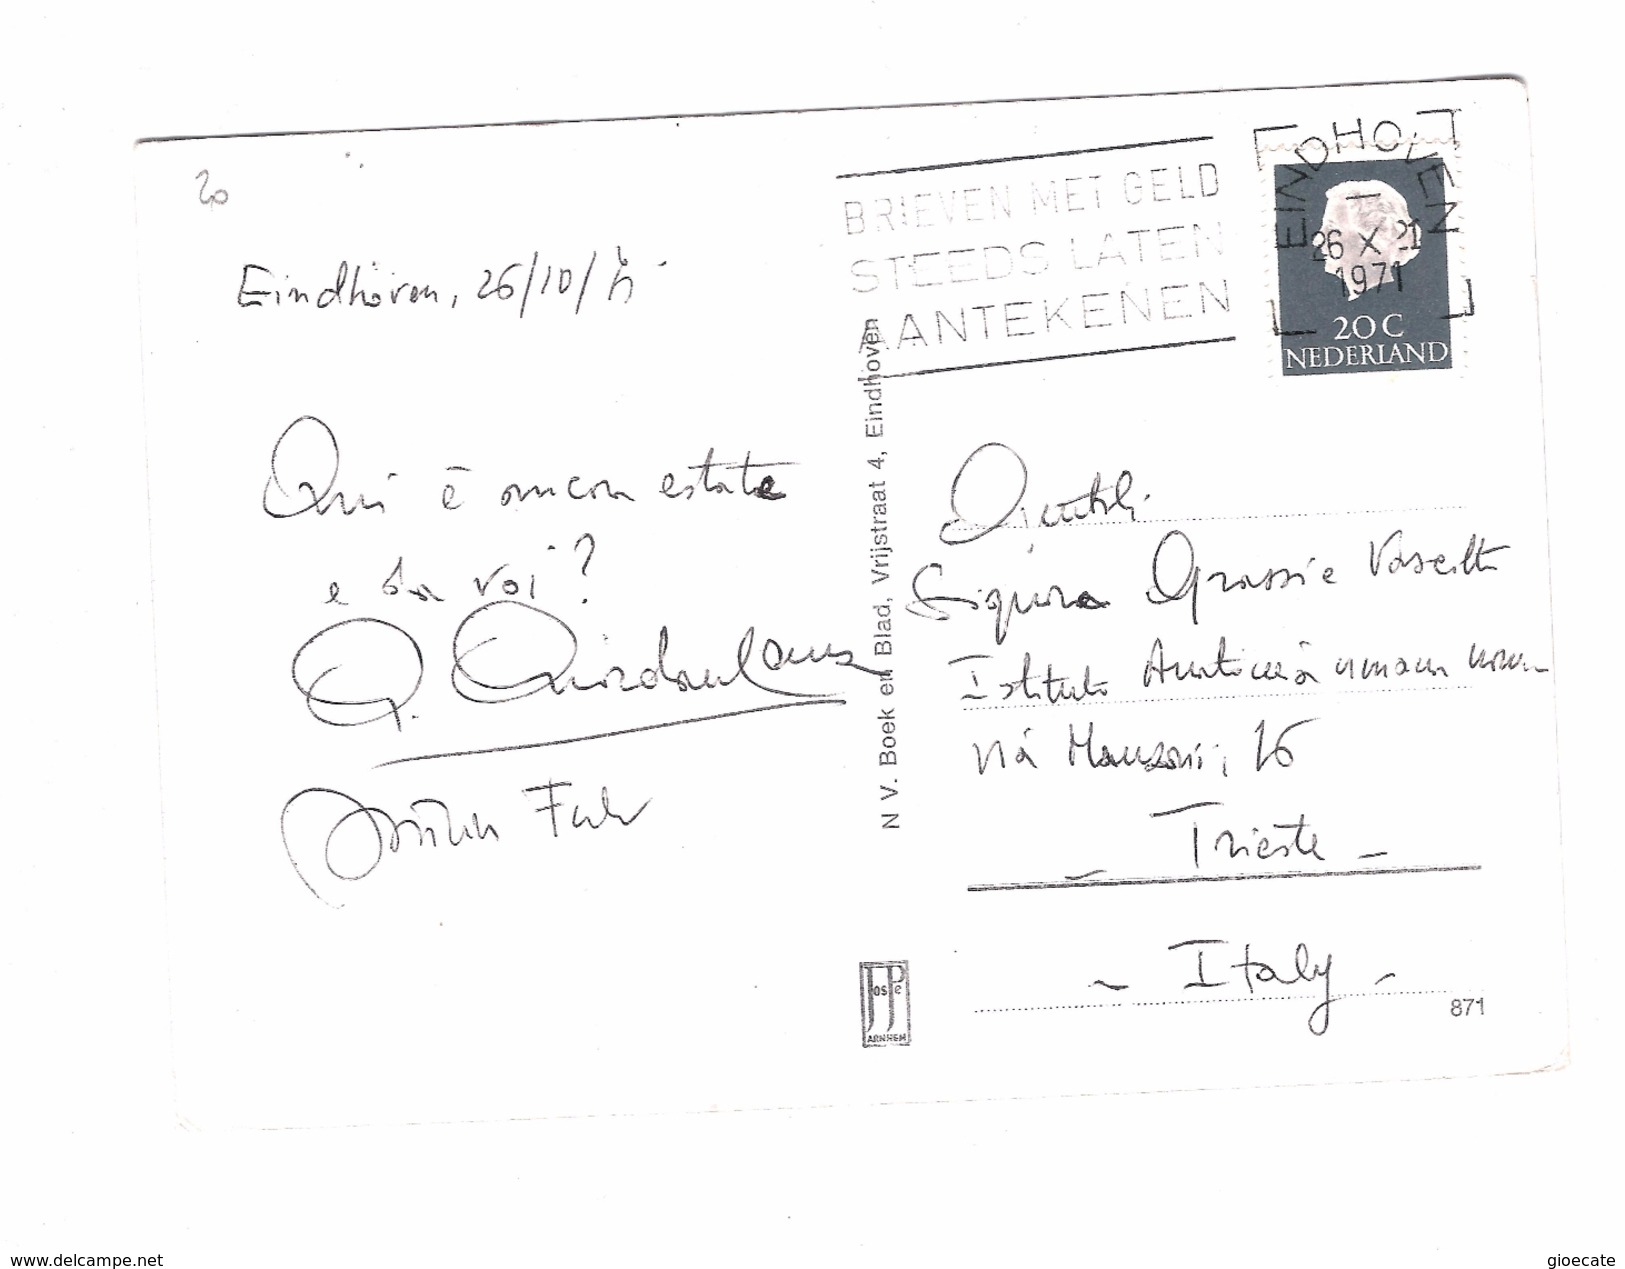 20
Eindhoven, 26/10/71
Qui è ancora estate
e da voi?
G.
BRIEVEN MET GELD
STEEDS LATEN
AANTEKENEN
EINDHOVEN
26 X 21
1971
20 C
NEDERLAND
N V. Boek en Blad, Vrijstraat 4, Eindhoven
Gentili
Signore Grassi e Vascotto
Istituto Anatomia umana norm
Via Manzoni, 16
- Trieste -
- Italy -
JosPé
ARNHEM
871
www.delcampe.net
gioecate